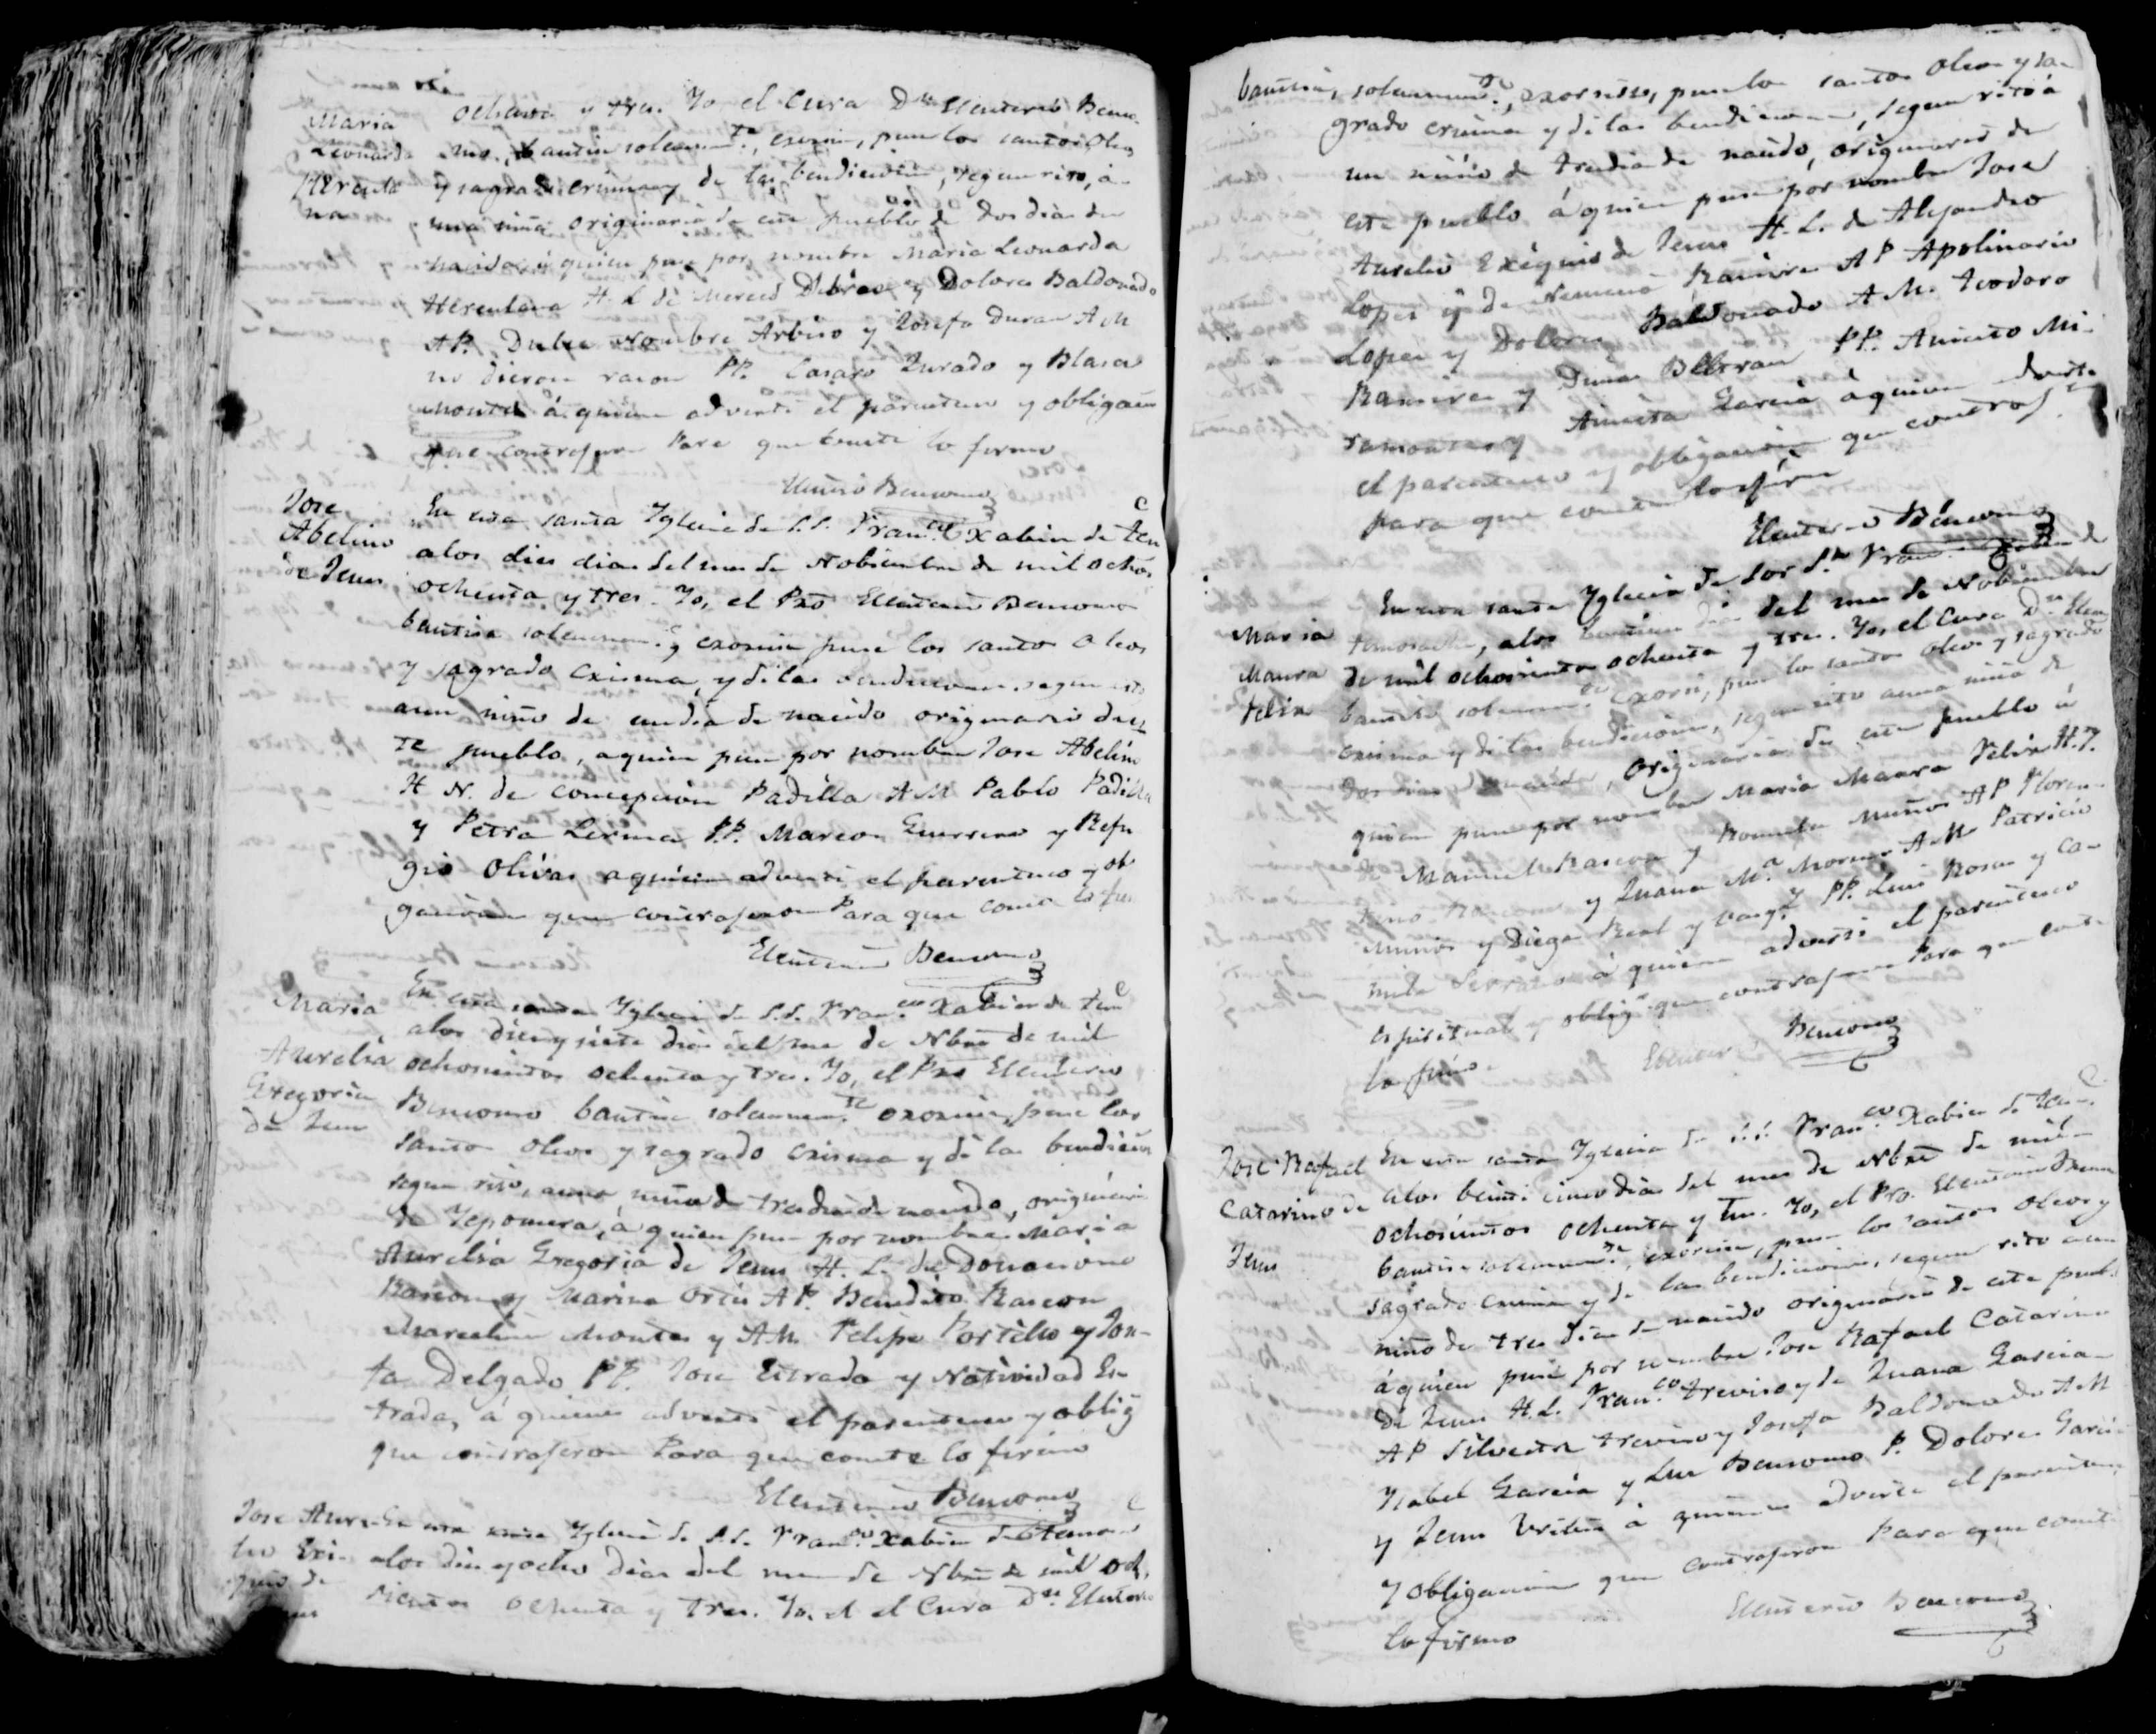 Maria
Leonarda
Hercula
na
ochenta y tres. Yo el Cura Dn Eleuterio Benco
mo, bautise solemnte, exorsise, puse los santos Oleos
y sagrado crisma y di las bendiciones, segun rito, a
una niña originaria de este pueblo de dos dias de
nacida á quien puse por nombre Maria Leonarda
Herculana H. L. de Merced y Dolores Baldonado
AP. Dulce Nombre Arbiso y Josefa Duran AM
no dieron rason PP. Jurado y Blasa
Montes á quienes adverti el parentesco y obligacion
que contrageron Para que conste lo firmo
Eleuterio Bencomo
Jose
Abelino
de Jesus
En esta santa Yglecia de S.S. Franco Xabier de Tem
a los dies dias del mes de Nobiembre de mil ochos
ochenta y tres. Yo, el Pro Eleuterio Bencomo
bautise solemnemte y exorsise puse los santos oleos
y sagrado crisma, y di las bendiciones segun rito
a un niño de un dia de nacido originario de es
te pueblo, a quien puse por nombre Jose Abelino
H N. de Concepcion Padilla AM Pablo Padilla
y Petra Lerma PP. Marcos Guerrero y Refu
gio Olivas a quienes adverti el parentesco y ob
gacion que contrageron Para que conste lo fir
Eleuterio Bencomo
Maria
Aurelia
Gregoria
de Jesus
En esta santa Yglecia de S.S. Franco Xabier de Tem
a los dies y siete dias del mes de Nbre de mil
ochosientos ochenta y tres. Yo, el Pro Eleuterio
Bencomo bautise solemnemte exorsise, puse los
santos oleos y sagrado crisma y di las bendicion
segun rito, a una niña de tres dias de nacida, originaria
de Yepomera, a quien puse por nombre Maria
Aurelia Gregoria de Jesus H. L. de Donaciono
Rascon y Marina Ortis AP. Benedito Rascon
Marcelina Montes y AM. Felipe Portillo y Jon-
ta Delgado PP. Jose Estrada y Natividad Es-
trada, á quienes adverti el parentesco y oblig
que contrageron Para que conste lo firmo
Eleuterio Bencomo
Jose Aure
lio Exi
quio de
En esta santa Yglecia de S.S. Franco Xabier de Temos
a los dies y ocho dias del mes de Nbre de mil och
sientos ochenta y tres. Yo, el el Cura Dn Eleuterio
bautise, solemnemte, exorsise, puse los santos Oleos y sa-
grado crisma y di las bendiciones, segun rito á
un niño de tres dias de nacido, originario de
este pueblo á quien puse por nombre Jose
Aurelio Exiquio de Jesus H. L. de Alejandro
Lopes y de Nemecia Ramires AP Apolinario
Lopes y Dolores Baldonado AM. Teodoro
Ramires y Beltran PP. Aniceto Mi-
ramontes y Aniceta Garcia á quienes adverti
el parentesco y obligacion que contragn
para que conste lo firmo
Eleuterio Bencomo
Maria
Maura
Felix
En esta santa Yglecia de Sor Sn Franco Xabier de
Temosachi, a los dias del mes de Nobiembre
de mil ochosientos ochenta y tres. Yo, el Cura Dn Eleu
bautise solemnte exorsi, puse los santos oleos y sagrado
crisma y di las bendiciones, segun rito a una niña de
dos dias de nacida, originaria de este pueblo á
quien puse por nombre Maria Maura Felix H.
Manuel Rascon y Romula Muños AP Floren-
tino Rascon y Juana Ma Moreno AM Patricio
Muños y Diega Real y Vasqz PP. Luis Rosas y Ca-
mila Serrano á quienes adverti el parentesco
espiritual y oblign que contrageron Para que conste
lo firmo. Eleuterio Bencomo
Jose Rafael
Catarino de
Jesus
En esta santa Yglecia de S.S. Franco Xabier de Tem
a los beinti cinco dias del mes de Nbre de mil
ochosientos ochenta y tres. Yo, el Pro. Eleuterio Benco
bautise solemnemte, exorsise, puse los santos oleos y
sagrado crisma y di las bendiciones, segun rito á un
niño de tres dias de nacido originario de este pueb.
á quien puse por nombre Jose Rafael Catarino
de Jesus H. L. Franco Treviso y de Juana Garcia
AP Silvestre Treviso y Josefa Baldonado AM
Ysabel Garcia y Luz Bencomo P. Dolores Garcia
y Jesus á quienes adverti el parentesco
y obligacion que contrageron Para que conste
lo firmo Eleuterio Bencomo